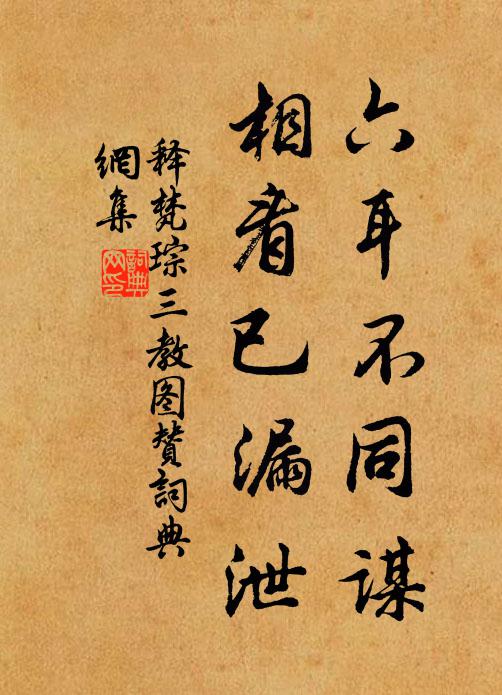 六耳不同謀
相看已漏泄
释梵琮三教图赞詞典
網集
詞典
网印